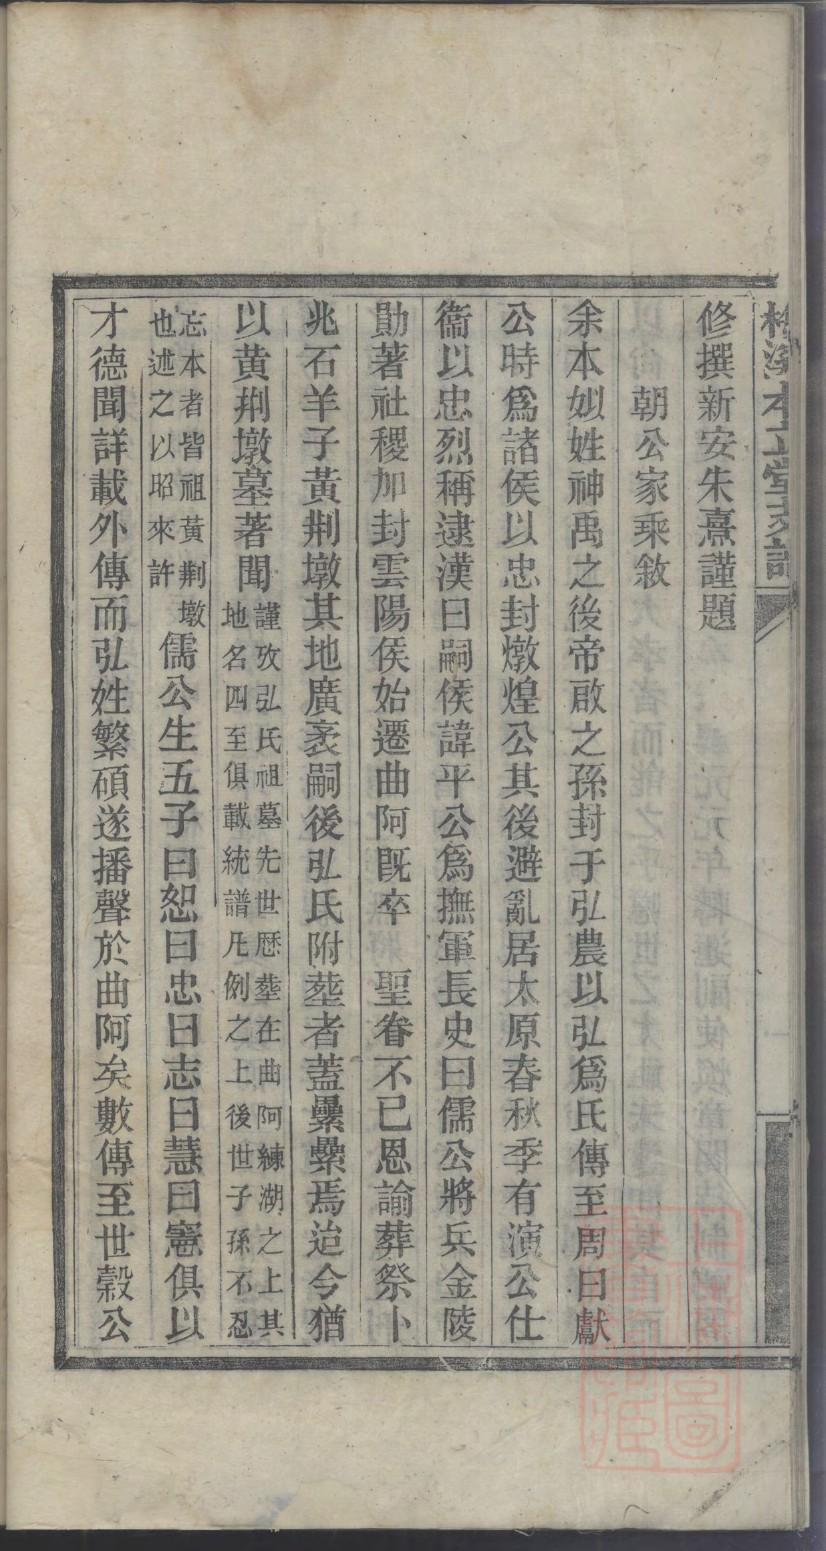 修撰新安朱熹謹題
朝公家乘敘
余本姒姓神禹之後帝啟之孫封于弘農以弘爲氏傳至周曰獻
公時爲諸侯以忠封燉煌公其後避亂居太原春秋季有演公仕
衞以忠烈稱逮漢曰嗣侯諱平公爲撫軍長史曰儒公將兵金陵
勛著社稷加封雲陽侯始遷曲阿旣卒聖眷不已恩諭葬祭卜
兆石羊子黃荆墩其地廣袤嗣後弘氏附塟者蓋纍纍焉迨今猶
以黃荆墩墓著聞
謹攷弘氏祖墓先世歷塟在曲阿練湖之上其
地名四至俱載統譜凡例之上後世子孫不忍
忘本者皆祖黃荆墩
也述之以昭來許
儒公生五子曰恕曰忠曰志曰慧曰憲俱以
才德聞詳載外傳而弘姓繁碩遂播聲於曲阿矣數傳至世穀公